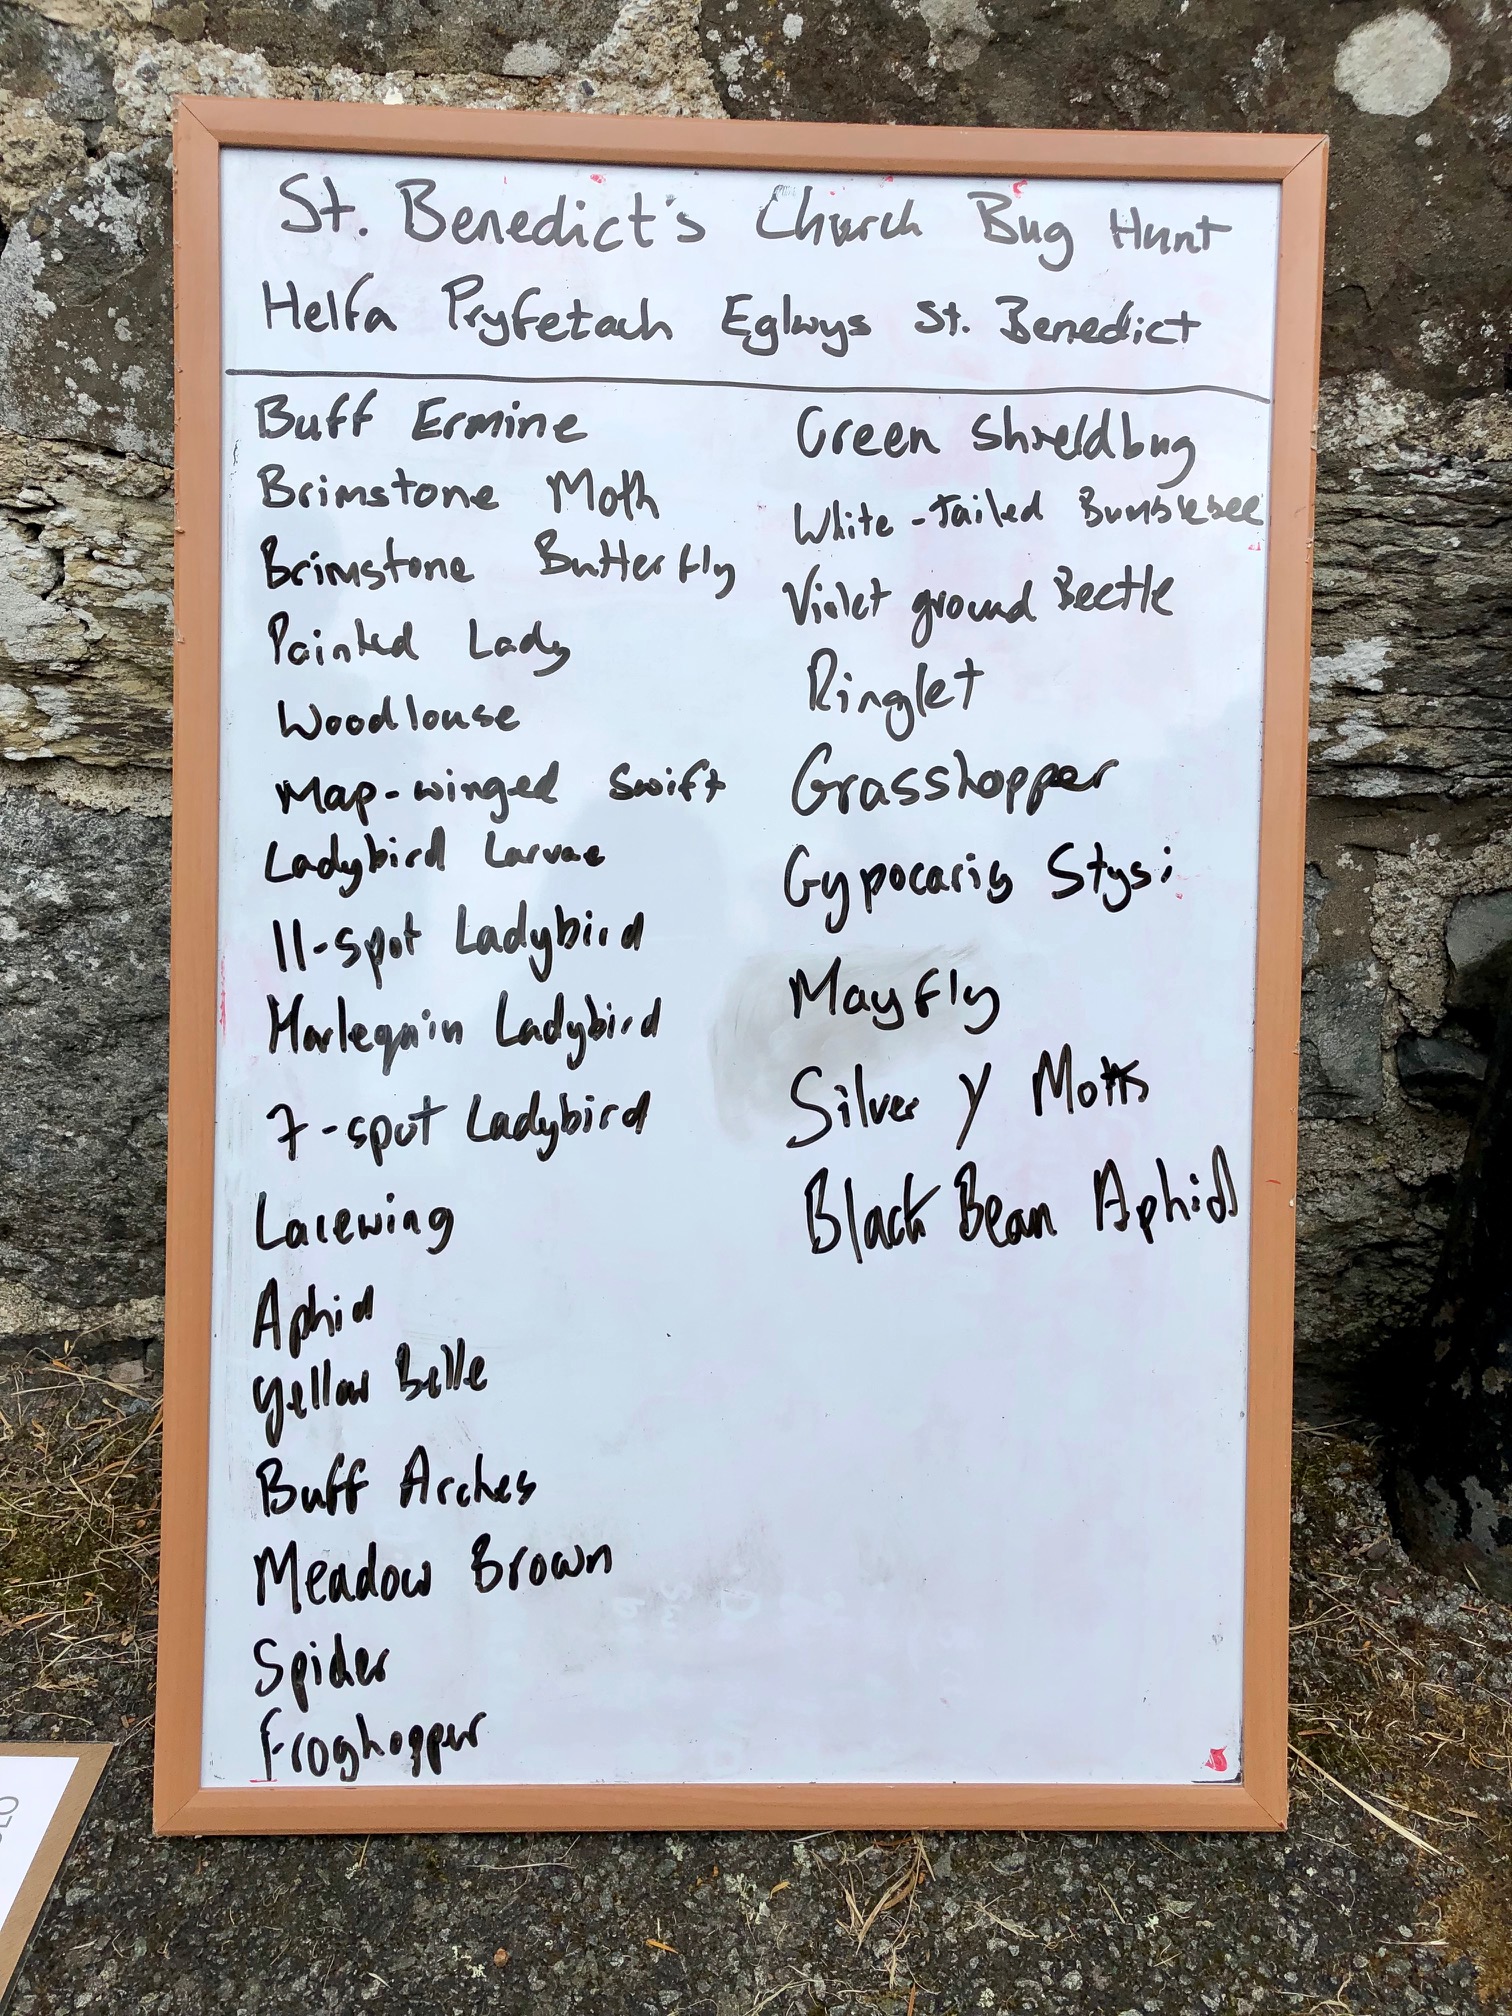 St. Benedict's Church Bug Hunt
Helfa Pryfetach Eglwys St. Benedict
Buff Ermine
Brimstone Moth
Brimstone Butterfly
Painted Lady
Woodlouse
Map-winged Swift
Ladybird Larvae
11-spot Ladybird
Harlequin Ladybird
7-spot Ladybird
Lacewing
Aphid
Yellow Belle
Buff Arches
Meadow Brown
Spider
Froghopper
Green Shieldbug
White-tailed Bumblebee
Violet ground Beetle
Ringlet
Grasshopper
Gypocaris Stysi
Mayfly
Silver Y Moth
Black Bean Aphid